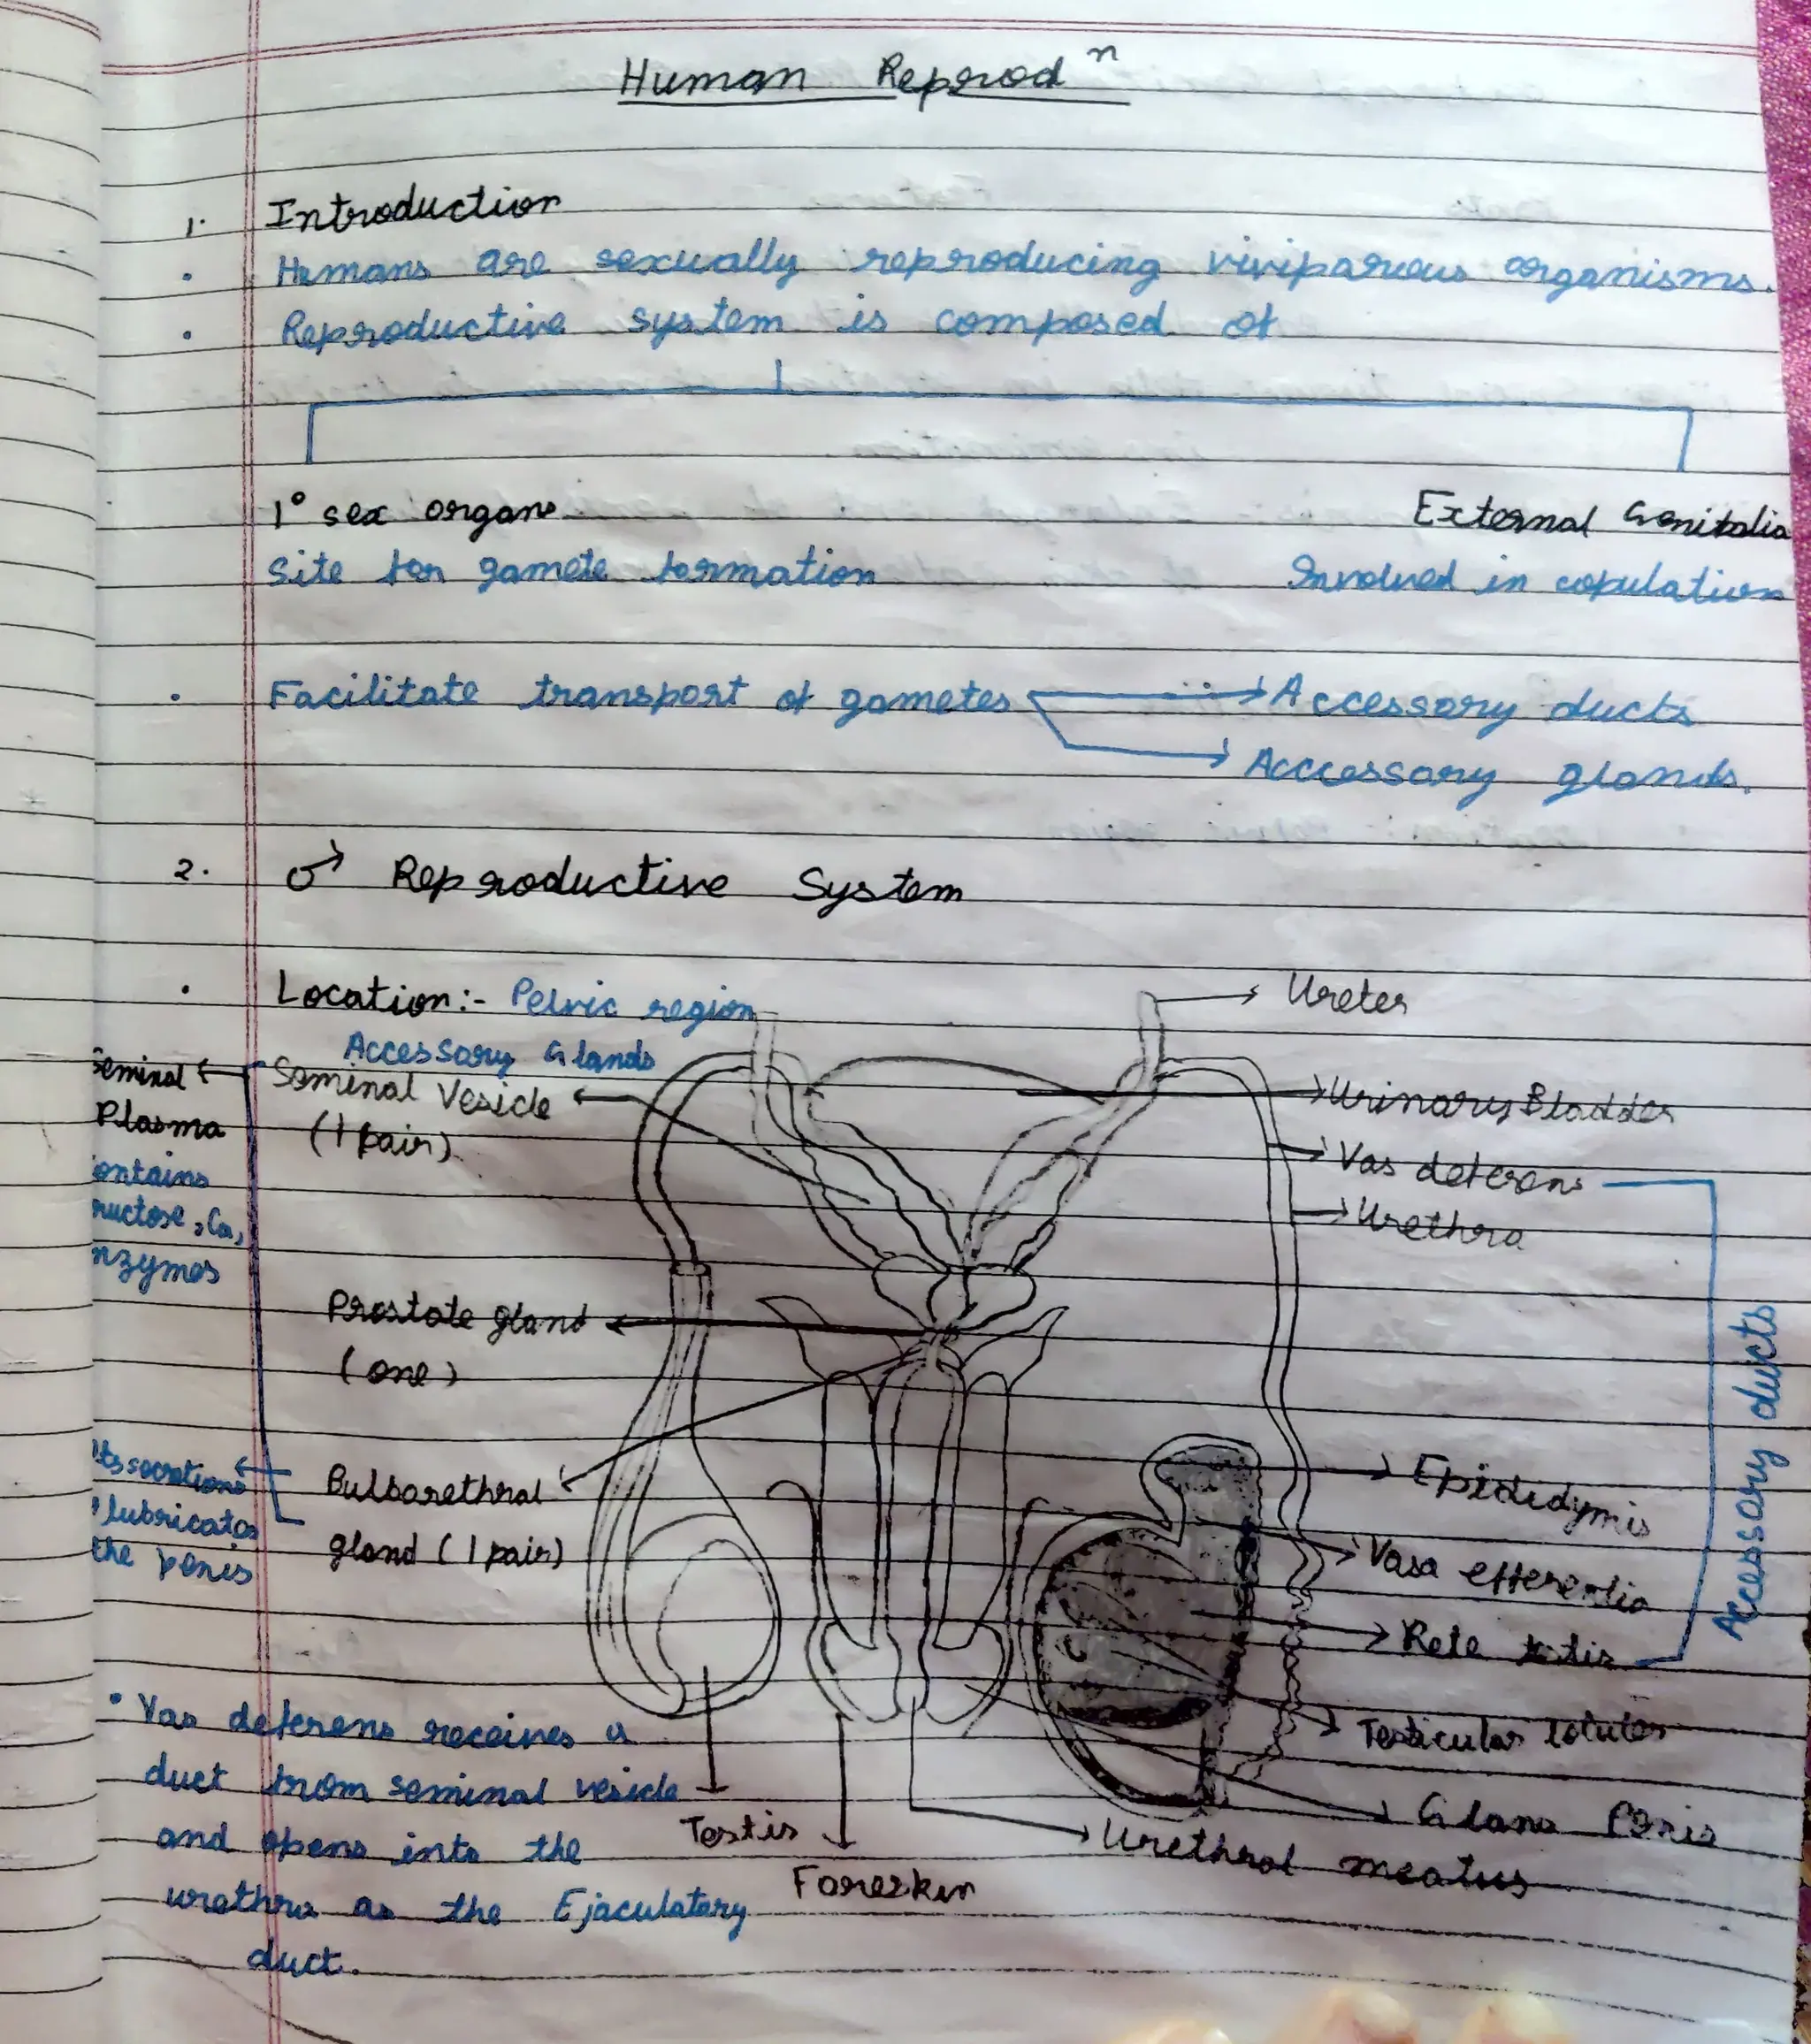 Human Reprodⁿ
1. Introduction
• Humans are sexually reproducing viviparous organisms.
• Reproductive system is composed of
1° sex organs
External Genitalia
Site for gamete formation
Involved in copulation
• Facilitate transport of gametes → Accessory ducts
→ Acccessory glands.
2. ♂ Reproductive System
• Location:- Pelvic region
Accessory Glands
Seminal Vesicle
(1 pair)
Seminal
Plasma
ontains
ructose, Ca,
nzymes
Prostate gland
(one)
Bulborethral
gland (1 pair)
its secretions
lubricates
the penis
Ureter
Urinary Bladder
Vas deferens
Urethra
Epididymis
Vasa efferentia
Rete testis
Testicular lobules
Glans Penis
Urethral meatus
Accessory ducts
Testis
Foreskin
• Vas deferens receives a
duct from seminal vesicle
and opens into the
urethra as the Ejaculatary
duct.